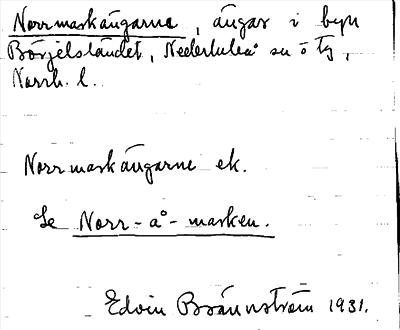 Norrmarkängarna, ängar i byn
Börjelslandet, Nederluleå sn o tg,
Norrb. l.
Norrmarkängarne ek.
Se Norr-å-marken.
Edvin Brännström 1931.